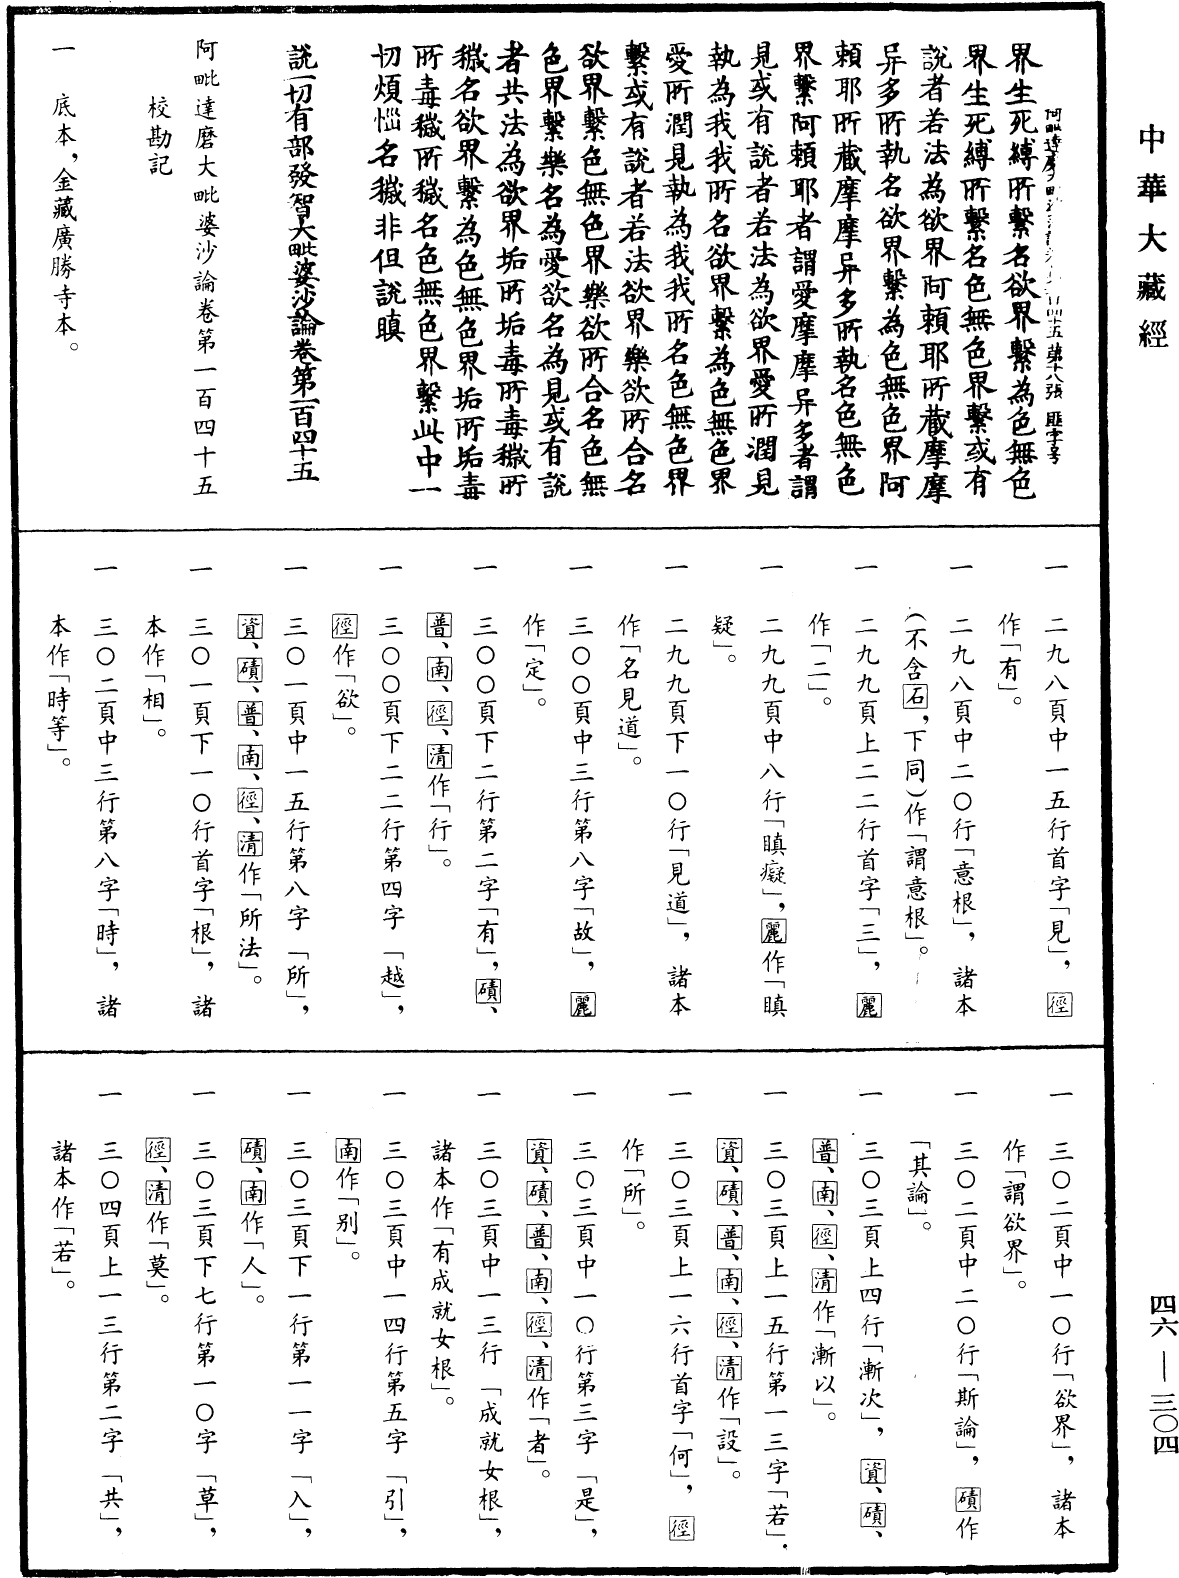 中華大藏經
界生死縛所繫名欲界繫為色無色
界生死縛所繫名色無色界繫或有
說者若法為欲界阿賴耶所藏摩摩
异多所執名欲界繫為色無色界阿
賴耶所藏摩摩异多所執名色無色
界繫阿賴耶者謂愛摩摩异多者謂
見或有說者若法為欲界愛所潤見
執為我我所名欲界繫為色無色界
愛所潤見執為我我所名色無色界
繫或有說者若法欲界樂欲所合名
欲界繫色無色界樂欲所合名色無
色界繫樂名為愛欲名為見或有說
者共法為欲界垢所垢毒所毒穢所
穢名欲界繫為色無色界垢所垢毒
所毒穢所穢名色無色界繫此中一
切煩惱名穢非但說瞋
說一切有部發智大毗婆沙論卷第一百四十五
阿毗達磨大毗婆沙論卷第一百四十五
校勘記
一 底本，金藏廣勝寺本。
一 二九八頁中一五行首字「見」，徑
作「有」。
一 二九八頁中二〇行「意根」，諸本
（不含石，下同）作「謂意根」。
一 二九九頁上二二行首字「三」，麗
作「二」。
一 二九九頁中八行「瞋癡」，麗作「瞋
疑」。
一 二九九頁下一〇行「見道」，諸本
作「名見道」。
一 三〇〇頁中三行第八字「故」，麗
作「定」。
一 三〇〇頁下二行第二字「有」，磧、
普、南、徑、清作「行」。
一 三〇〇頁下二二行第四字「越」，
徑作「欲」。
一 三〇一頁中一五行第八字「所」，
資、磧、普、南、徑、清作「所法」。
一 三〇一頁下一〇行首字「根」，諸
本作「相」。
一 三〇二頁中三行第八字「時」，諸
本作「時等」。
一 三〇二頁中一〇行「欲界」，諸本
作「謂欲界」。
一 三〇二頁中二〇行「斯論」，磧作
「其論」。
一 三〇三頁上四行「漸次」，資、磧、
普、南、徑、清作「漸以」。
一 三〇三頁上一五行第一三字「若」，
資、磧、普、南、徑、清作「設」。
一 三〇三頁上一六行首字「何」，徑
作「所」。
一 三〇三頁中一〇行第三字「是」，
資、磧、普、南、徑、清作「者」。
一 三〇三頁中一三行「成就女根」，
諸本作「有成就女根」。
一 三〇三頁中一四行第五字「引」，
南作「别」。
一 三〇三頁下一行第一一字「入」，
磧、南作「人」。
一 三〇三頁下七行第一〇字「草」，
徑、清作「莫」。
一 三〇四頁上一三行第二字「共」，
諸本作「若」。
四六—三〇四